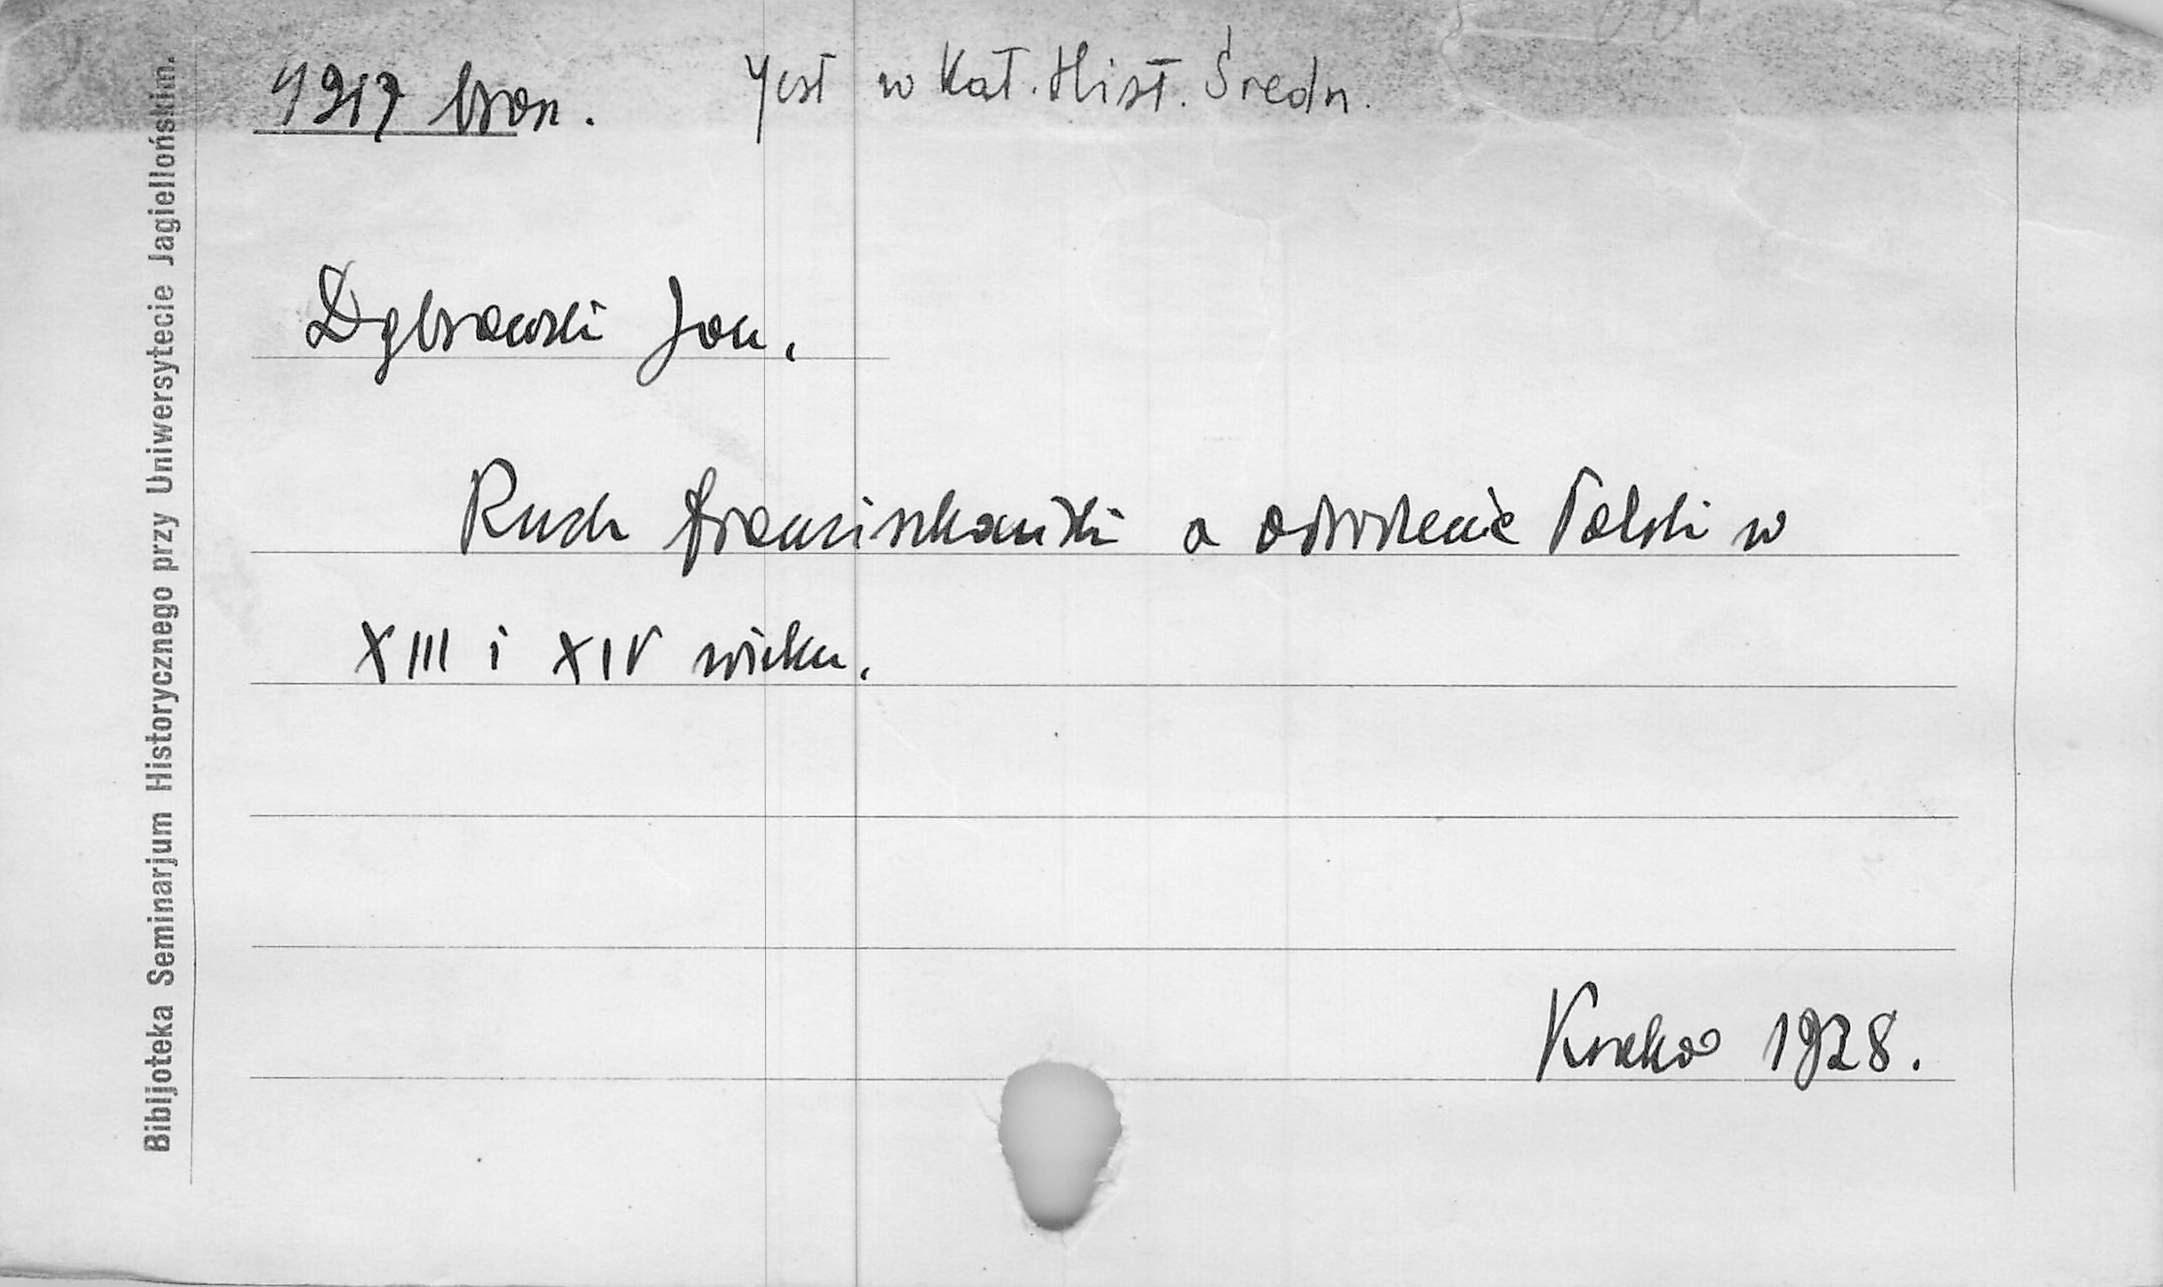 1917 bron.
Jest w Kat. Hist. Średn.
Dąbrowski Jan.
Ruch franciszkański a odrodzenie Polski w
XIII i XIV wieku.
Kraków 1928.
Bibljoteka Seminarjum Historycznego przy Uniwersytecie Jagiellońskim.